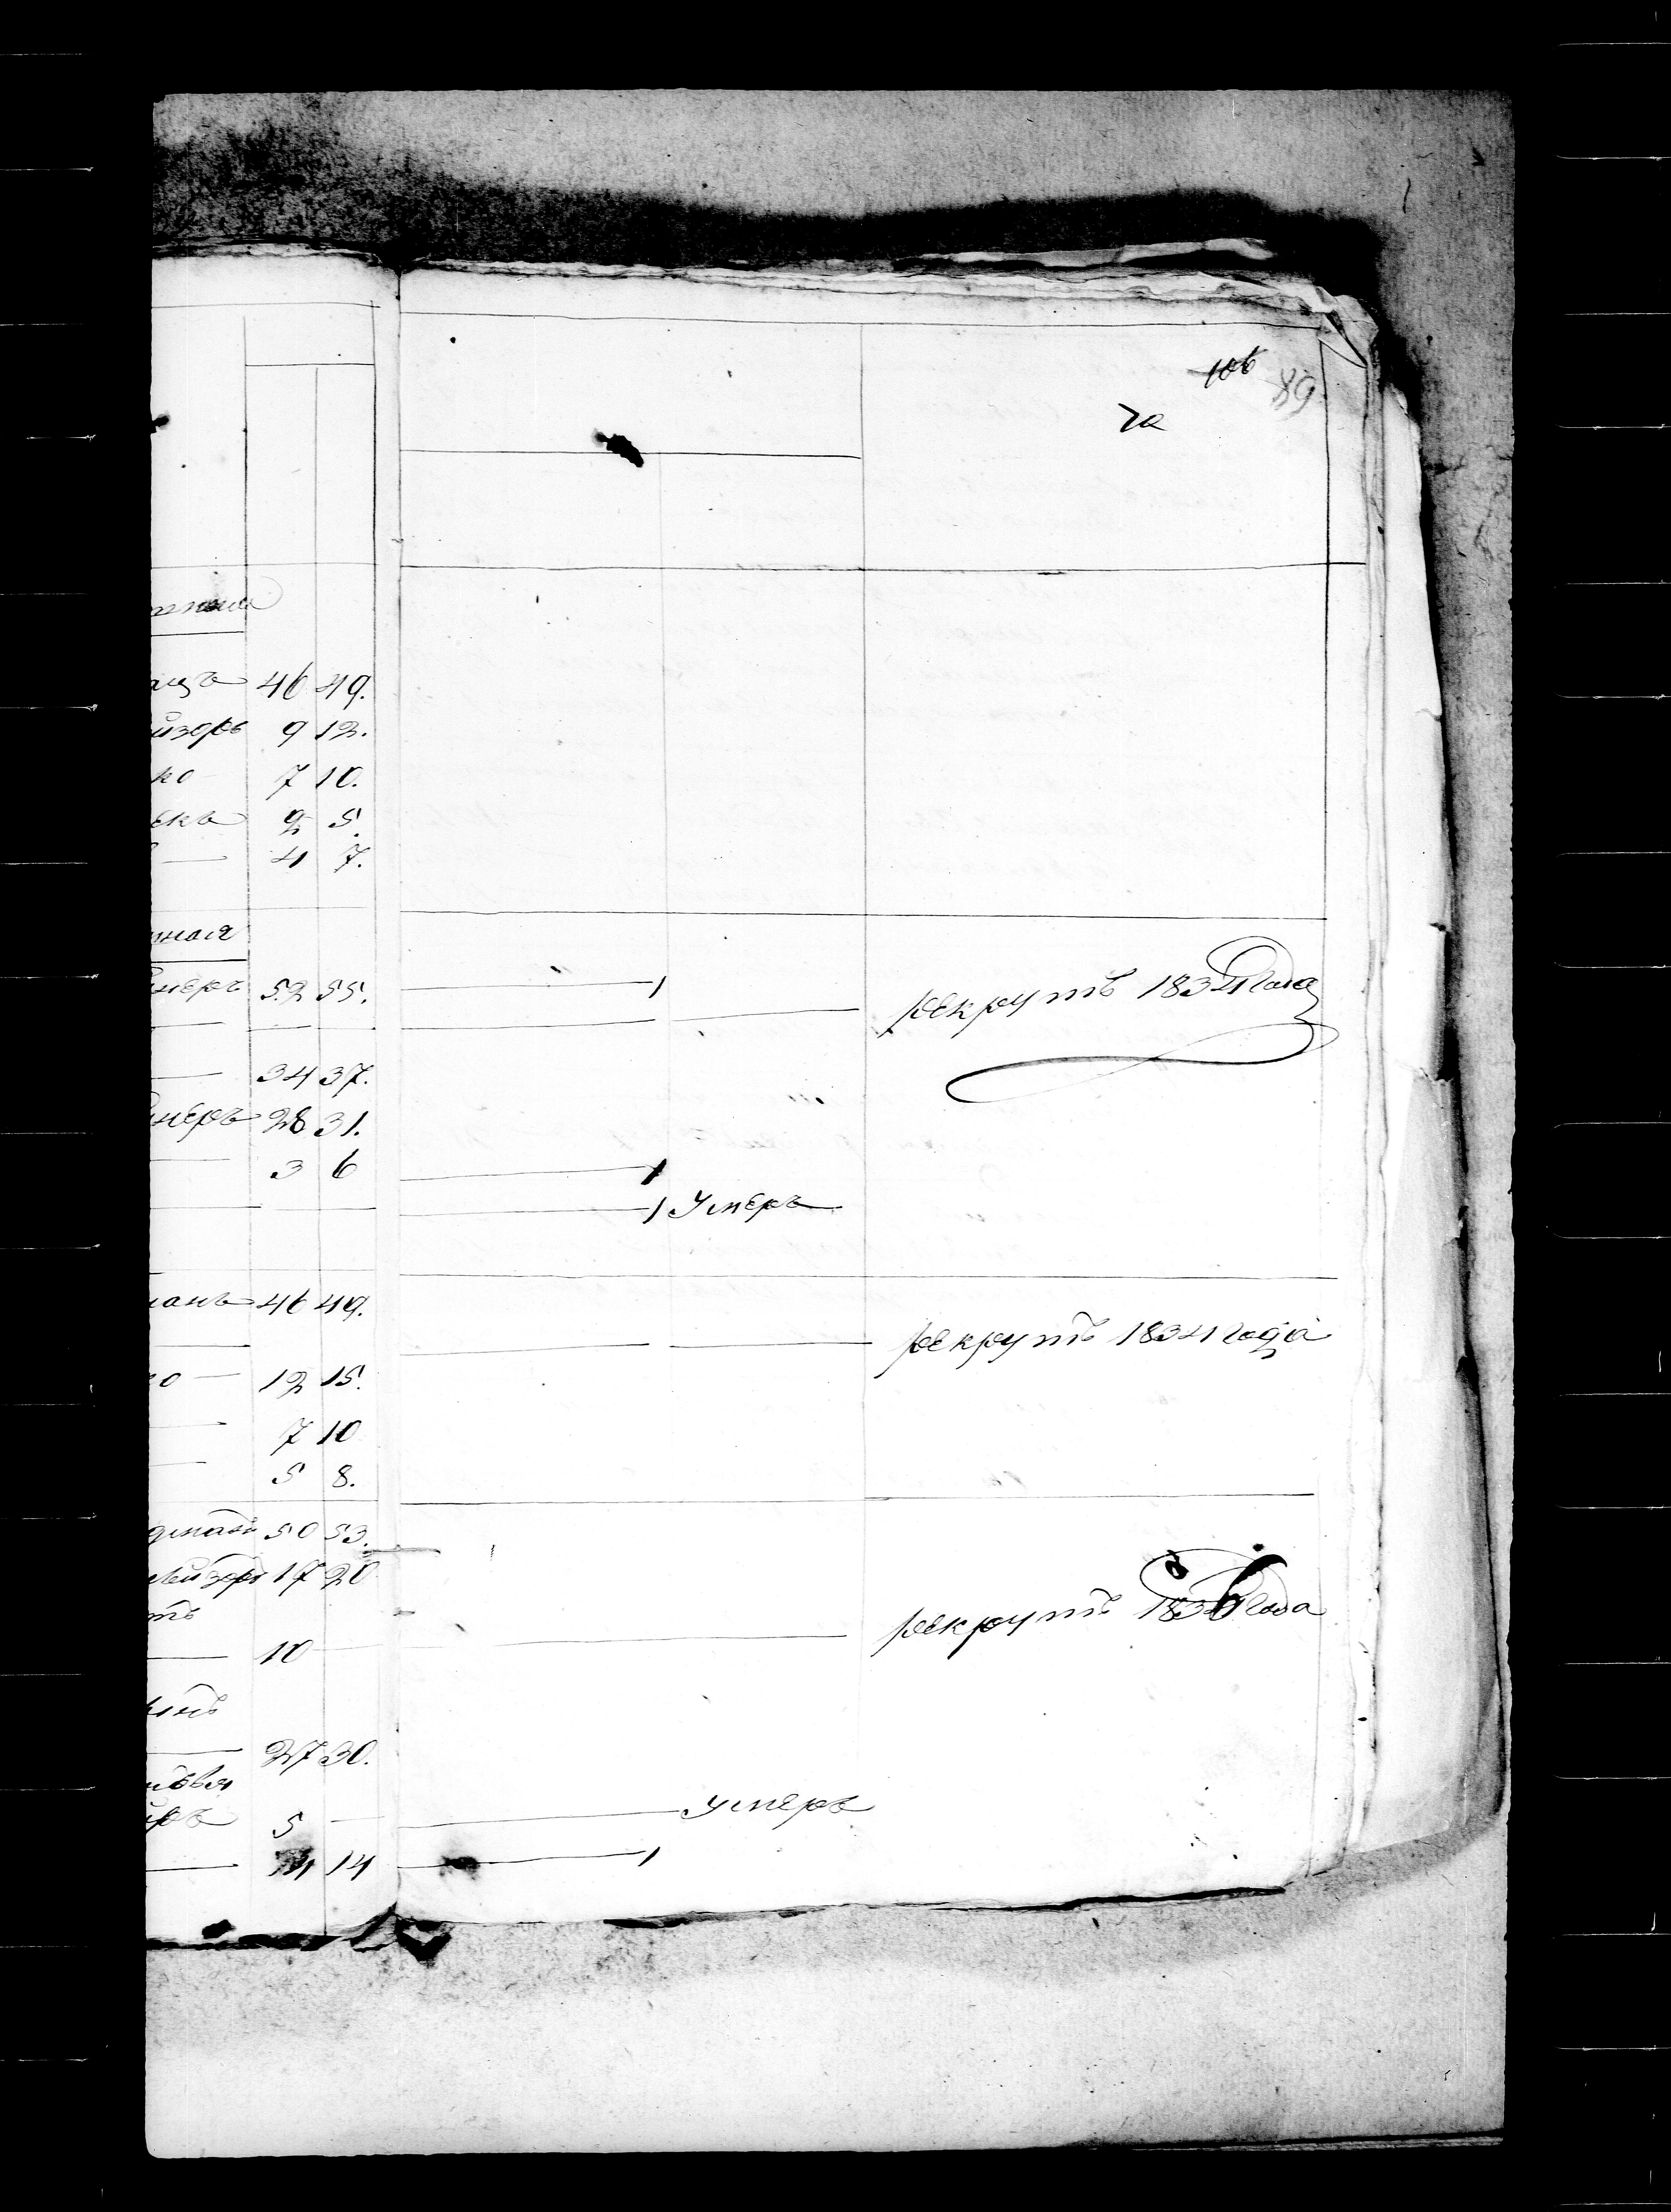 106 89
за
ацъ 46 49.
йзоръ 9 12.
ко 7 10.
екъ 2 5.
4 7.
нная
неръ 52 55. 1 рекрутъ 1834 года
34 37.
неръ 28 31.
3 6 1
1 Умеръ
манъ 46 49.
рекрутъ 1834 года
ко 12 15.
7 10
5 8.
50 53.
лейзоръ 17 20
тъ
10 рекрутъ года
27 30.
5 умеръ
14 1